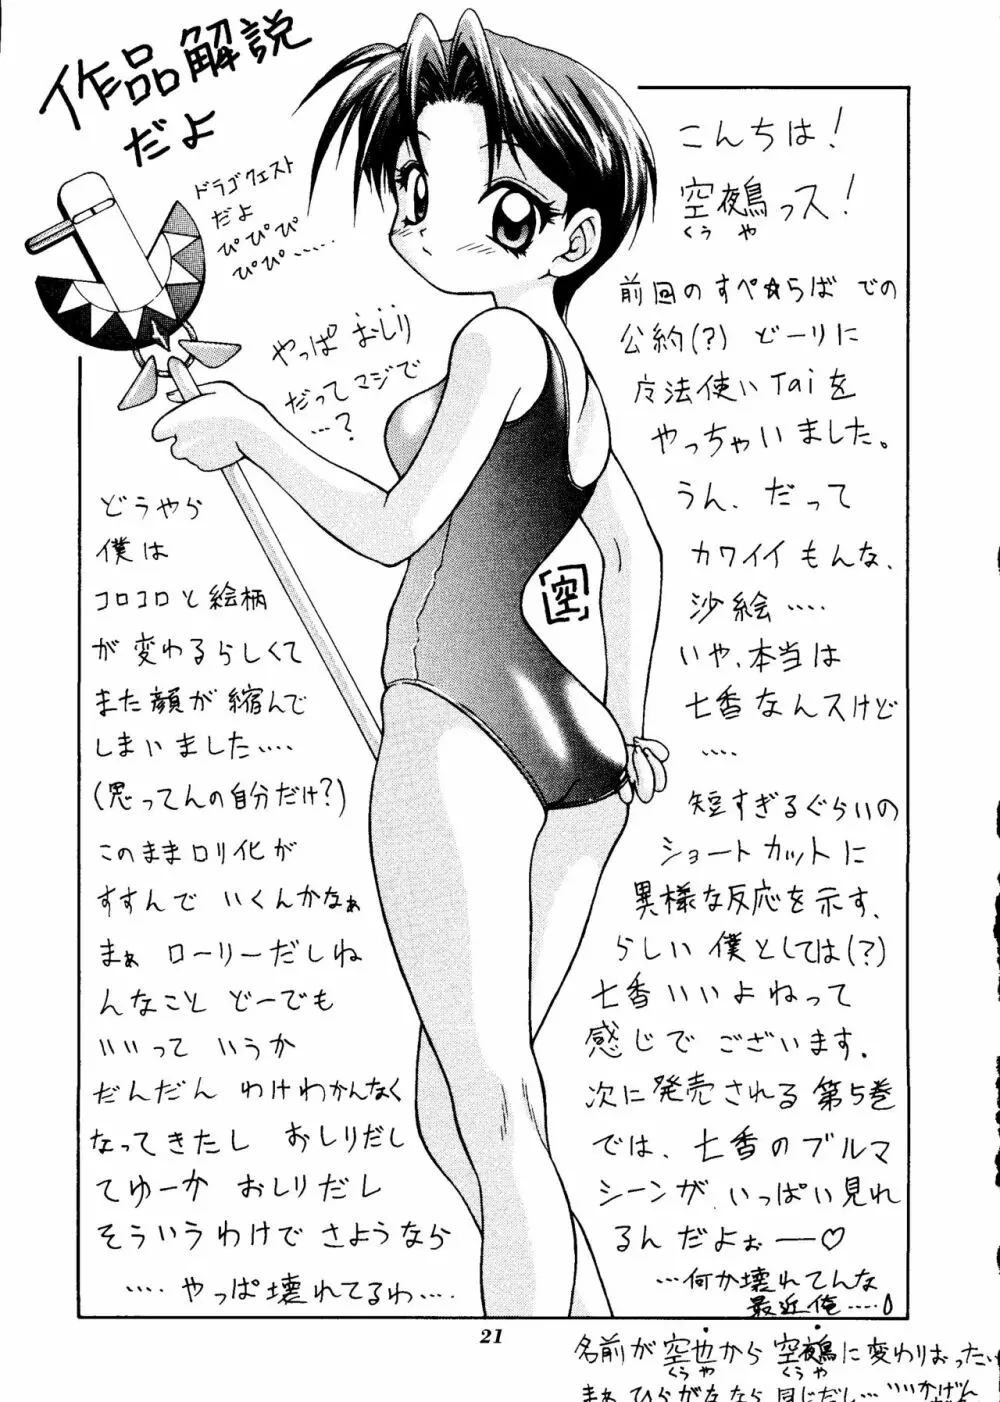 作品解説
だよ
ドラゴクエスト
だよ
ぴぴぴ
ぴぴ・・・・・
やっぱ おしり
だってマジで
・・・?
こんちは!
空鵺っス!
くう や
前回のすぺ☆らばでの
公約(?)どーりに
魔法使いTaiを
やっちゃいました。
うん、だって
カワイイもんな、
沙絵・・・・
いや、本当は
七香なんスけど
・・・・
短すぎるぐらいの
ショートカットに
異様な反応を示す、
らしい僕としては(?)
七香いいよねって
感じでございます.
次に発売される第5巻
では、七香のブルマ
シーンが、いっぱい見れ
るんだよぉー♡
・・・何か壊れてんな
最近俺・・・・
どうやら
僕は
コロコロと絵柄
が変わるらしくて
また顔が縮んで
しまいました・・・・
(思ってんの自分だけ?)
このままロリ化が
すすんでいくんかなぁ
まぁ ローリーだしね
んなこと どーでも
いいって いうか
だんだん わけわかんなく
なってきたし おしりだし
てゆーか おしりだし
そういうわけで さようなら
・・・・やっぱ壊れてるわ・・・・
空
21
名前が空也から空鵺に変わりおったい
くうや くうや
まぁひらがななら同じだし・・・いいかげん